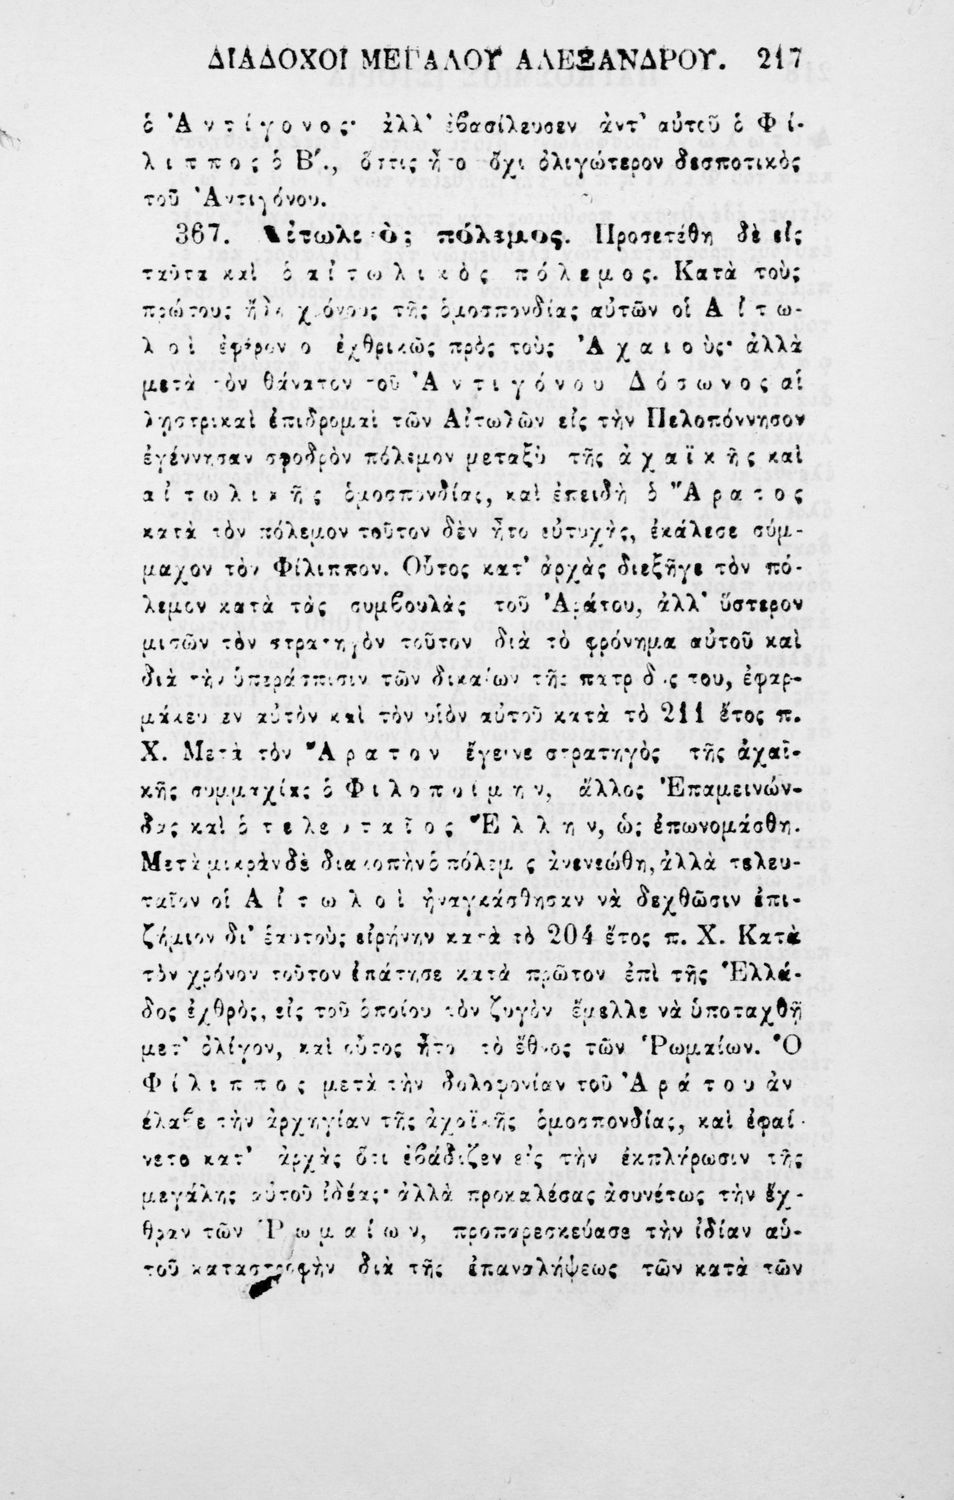 ΔΙΑΔΟΧΟΙ ΜΕΓΑΛΟΥ ΑΛΕΞΑΝΔΡΟΥ. 217
ὁ Ἀντίγονος· ἀλλ' ἐβασίλευσεν ἀντ' αὐτοῦ ὁ Φί-
λιππος ὁ Β΄., ὅστις ἦτο ὄχι ὀλιγώτερον δεσποτικὸς
τοῦ Ἀντιγόνου.
367. Αἰτωλικὸς πόλεμος. Προσετέθη δὲ εἰς
ταῦτα καὶ ὁ αἰτωλικὸς πόλεμος. Κατὰ τοὺς
πρώτους ἤδη χρόνους τῆς ὁμοσπονδίας αὐτῶν οἱ Αἰτω-
λοὶ ἐφέροντο ἐχθρικῶς πρὸς τοὺς Ἀχαιούς· ἀλλὰ
μετὰ τὸν θάνατον τοῦ Ἀντιγόνου Δόσωνος αἱ
λῃστρικαὶ ἐπιδρομαὶ τῶν Αἰτωλῶν εἰς τὴν Πελοπόννησον
ἐγέννησαν σφοδρὸν πόλεμον μεταξὺ τῆς ἀχαϊκῆς καὶ
αἰτωλικῆς ὁμοσπονδίας, καὶ ἐπειδὴ ὁ Ἄρατος
κατὰ τὸν πόλεμον τοῦτον δὲν ἦτο εὐτυχὴς, ἐκάλεσε σύμ-
μαχον τὸν Φίλιππον. Οὗτος κατ' ἀρχὰς διεξῆγε τὸν πό-
λεμον κατὰ τὰς συμβουλὰς τοῦ Ἀράτου, ἀλλ' ὕστερον
μισῶν τὸν στρατηγὸν τοῦτον διὰ τὸ φρόνημα αὐτοῦ καὶ
διὰ τὴν ὑπεράσπισιν τῶν δικαίων τῆς πατρίδος του, ἐφαρ-
μάκευσεν αὐτὸν καὶ τὸν υἱὸν αὐτοῦ κατὰ τὸ 211 ἔτος π.
Χ. Μετὰ τὸν Ἄρατον ἔγεινε στρατηγὸς τῆς ἀχαϊ-
κῆς συμμαχίας ὁ Φιλοποίμην, ἄλλος Ἐπαμεινών-
δας καὶ ὁ τελευταῖος Ἕλλην, ὡς ἐπωνομάσθη.
Μετὰ μικρὰν δὲ διακοπὴν ὁ πόλεμος ἀνενεώθη, ἀλλὰ τελευ-
ταῖον οἱ Αἰτωλοὶ ἠναγκάσθησαν νὰ δεχθῶσιν ἐπι-
ζήμιον δι' ἑαυτοὺς εἰρήνην κατὰ τὸ 204 ἔτος π. Χ. Κατὰ
τὸν χρόνον τοῦτον ἐπάτησε κατὰ πρῶτον ἐπὶ τῆς Ἑλλά-
δος ἐχθρὸς, εἰς τοῦ ὁποίου τὸν ζυγὸν ἔμελλε νὰ ὑποταχθῇ
μετ' ὀλίγον, καὶ οὗτος ἦτο τὸ ἔθνος τῶν Ῥωμαίων. Ὁ
Φίλιππος μετὰ τὴν δολοφονίαν τοῦ Ἀράτου ἀν
έλαβε τὴν ἀρχηγίαν τῆς ἀχαϊκῆς ὁμοσπονδίας, καὶ ἐφαί-
νετο κατ' ἀρχὰς ὅτι ἐβάδιζεν εἰς τὴν ἐκπλήρωσιν τῆς
μεγάλης αὐτοῦ ἰδέας· ἀλλὰ προκαλέσας ἀσυνέτως τὴν ἔχ-
θραν τῶν Ῥωμαίων, προπαρεσκεύασε τὴν ἰδίαν αὑ-
τοῦ καταστροφὴν διὰ τῆς ἐπαναλήψεως τῶν κατὰ τῶν